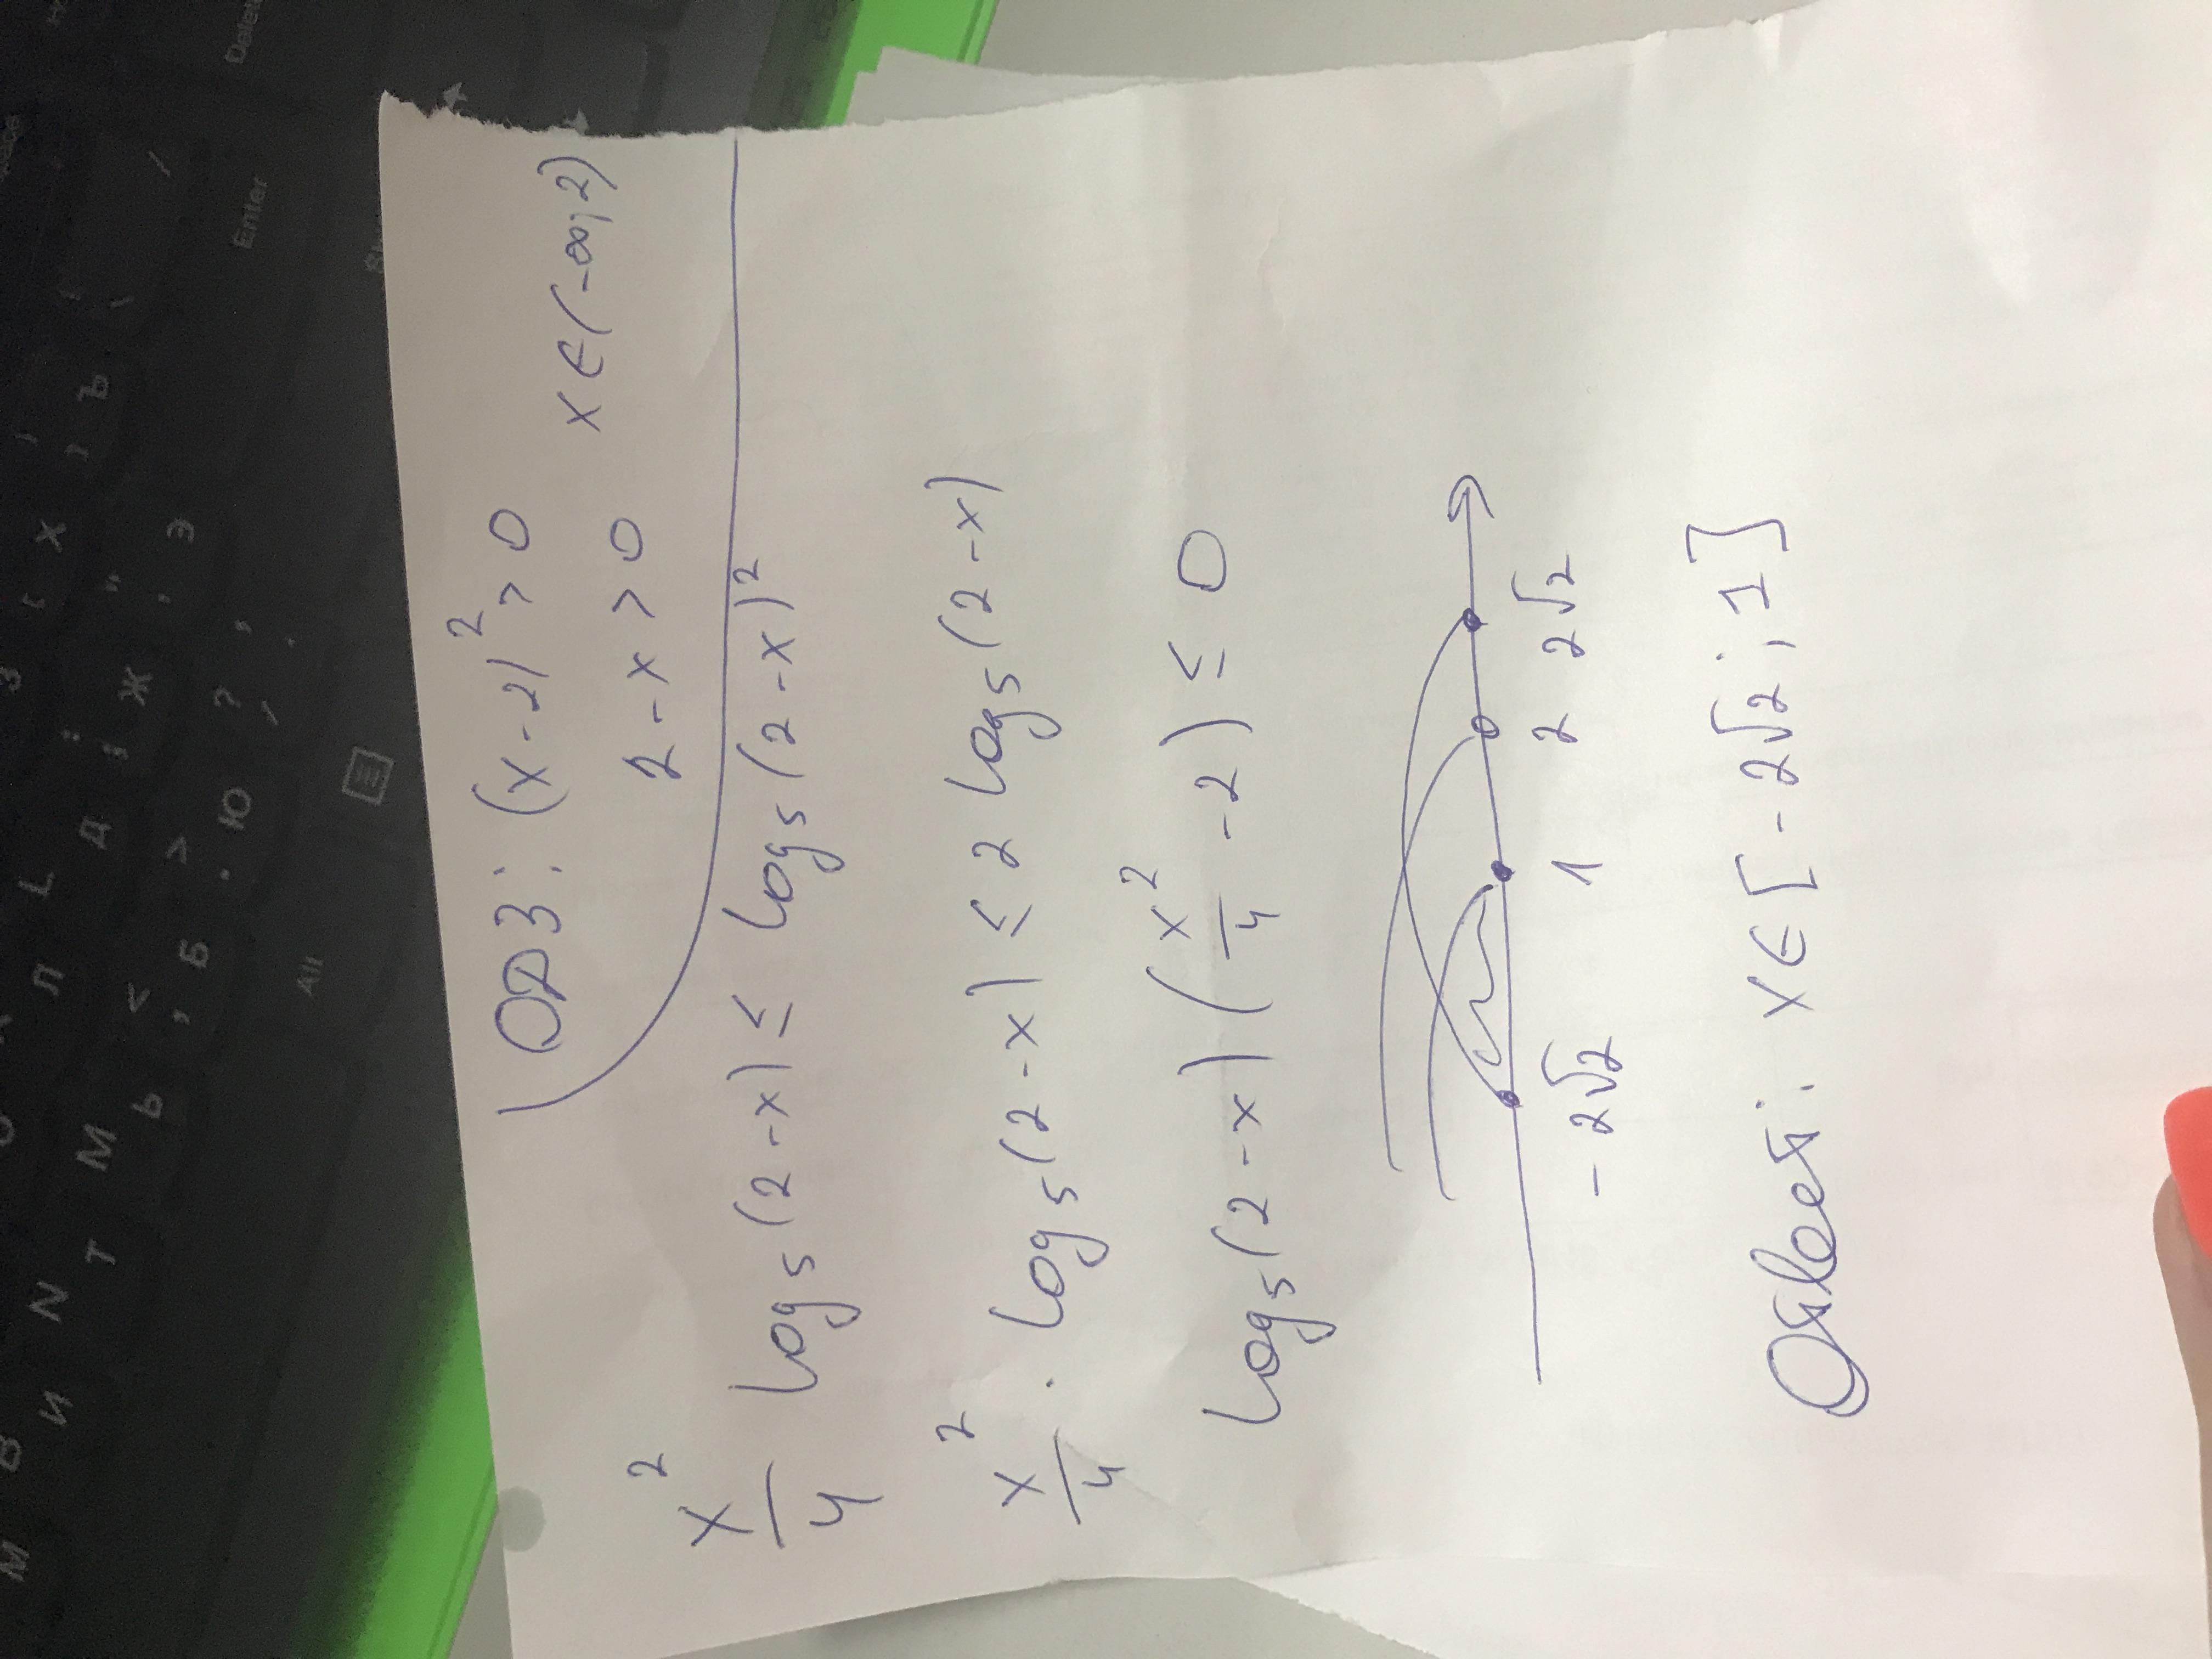 ОДЗ: (x-2)² > 0
2-x > 0 x∈(-∞; 2)
x²/4 log₅(2-x) ≤ log₅(2-x)²
x²/4 · log₅(2-x) ≤ 2 log₅(2-x)
log₅(2-x)(x²/4 -2) ≤ 0
-2√2 1 2 2√2
Ответ: x∈[-2√2; 1]
Delete
Enter
Alt